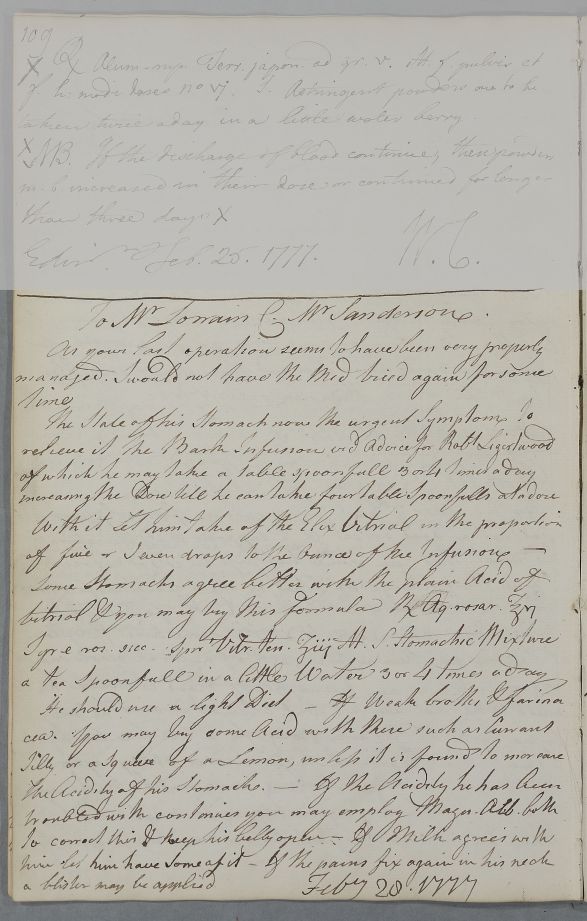 109
X ℞ Alum. rup. Terr. japon. aa gr. v. M. f. pulvis et
f. h. modi doses no vj. S. Astringent powders one to be
taken twice a day in a little water berry.
X NB. If the discharge of blood continue, these powders
m. b. increased in their dose or continued for longer
than three days X
Edinr. Feb. 25. 1777. W. C.
To Mr Lorrain C Mr Sanderson.
As your last operation seems to have been very properly
managed. I would not have the tried again for some
time
The State of his Stomach now the urgent Symptom. To
relieve it the Bark Infusion vid Advice for Robt Ligertwood
of which he may take a table spoonfull 3 or 4 times a day
increasing the Dose till he can take four table Spoonfulls at a dose
With it let him take of the Elix Vitriol in the proportion
of five or Seven drops to the Ounce of the Infusion —
Some Stomachs agree better with the plain Acid of
vitriol & you may try this formula ℞ Aq. rosar.
Syr e ros. sicc. Spr Vitr. ten. M. S. Stomachic Mixture
a tea Spoonfull in a little Water 3 or 4 times a day
He should use a light Diet — of Weak broths & farina
cea. You may try some Acid with these such as Currant
Jilly or a squeeze of a Lemon, unless it is found to increase
the Acidity of his Stomach. — If the Acidity he has been
troubled with continues you may employ Magn. Alb. both
to correct this & keep his belly open — If Milk agrees with
him let him have some of it — If the pains fix again in his neck
a blister may be applied Feby 28. 1777